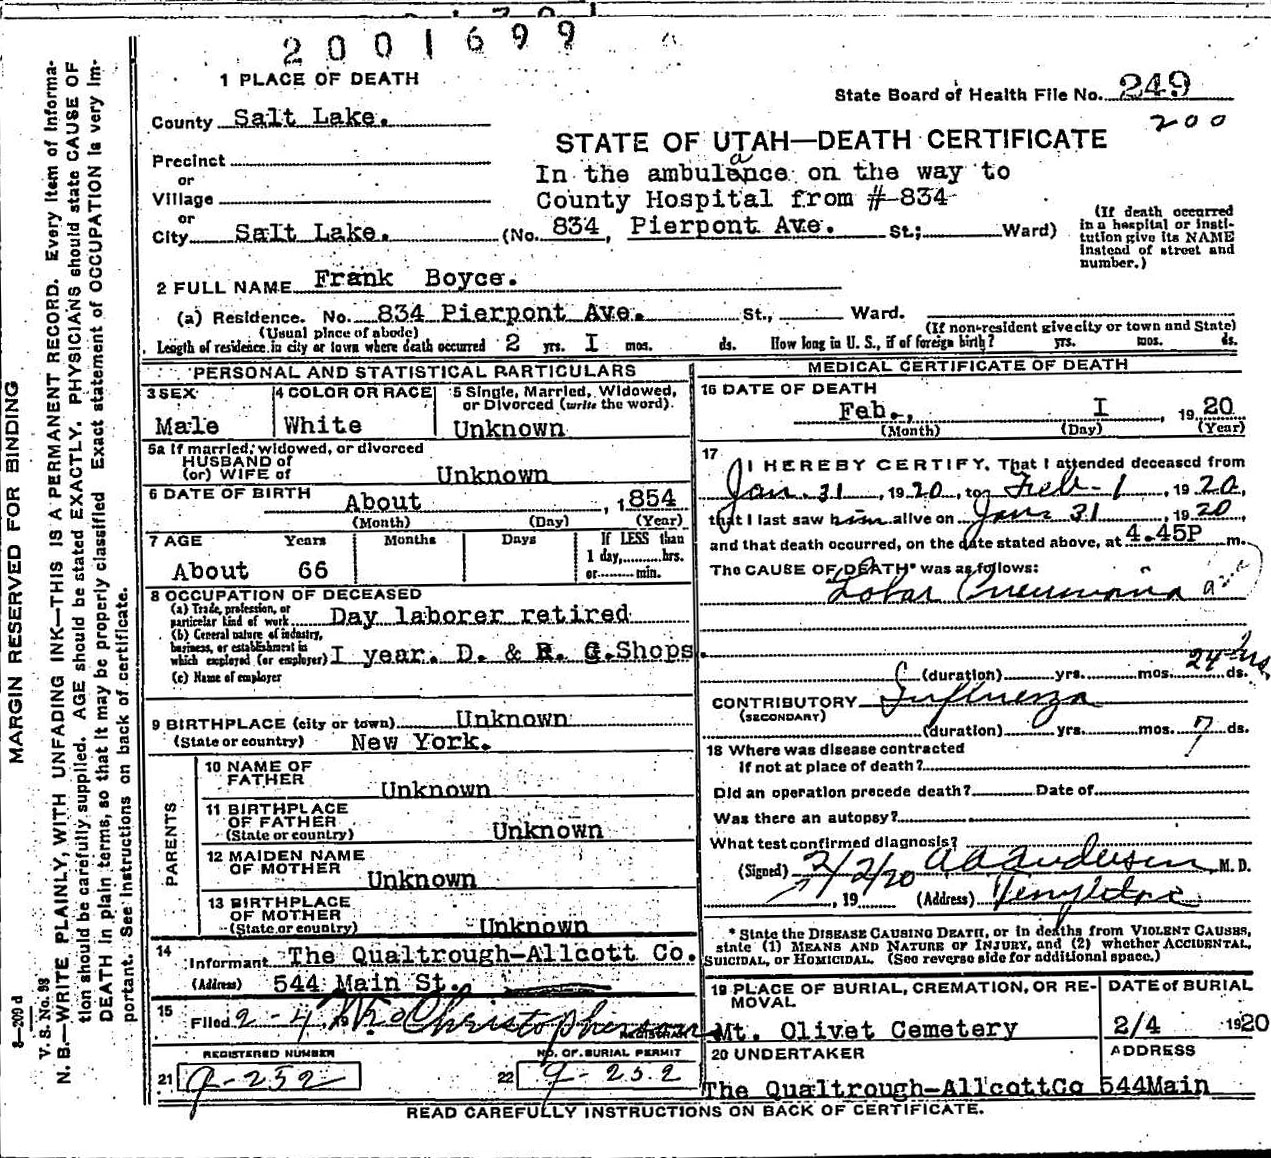 2001699
1 PLACE OF DEATH
State Board of Health File No. 249
200
County Salt Lake.
STATE OF UTAH—DEATH CERTIFICATE
Precinct
or
Village
or
City Salt Lake.
In the ambulance on the way to
County Hospital from #834
(No. 834, Pierpont Ave. St.; Ward)
(If death occurred
in a hospital or insti-
tution give its NAME
instead of street and
number.)
2 FULL NAME Frank Boyce.
(a) Residence. No. 834 Pierpont Ave. St., Ward.
(Usual place of abode)
(If non-resident give city or town and State)
Length of residence in city or town where death occurred 2 yrs. I mos. ds. How long in U. S., if of foreign birth? yrs. mos. ds.
PERSONAL AND STATISTICAL PARTICULARS
3 SEX
Male
4 COLOR OR RACE
White
5 Single, Married, Widowed,
or Divorced (write the word).
Unknown
5a If married, widowed, or divorced
HUSBAND of
(or) WIFE of Unknown
6 DATE OF BIRTH About , 1854
(Month) (Day) (Year)
7 AGE Years Months Days If LESS than
1 day, hrs.
or min.
About 66
8 OCCUPATION OF DECEASED
(a) Trade, profession, or
particular kind of work Day laborer retired
(b) General nature of industry,
business, or establishment in
which employed (or employer) I year. D. & R. G. Shops.
(c) Name of employer
9 BIRTHPLACE (city or town) Unknown
(State or country) New York.
PARENTS
10 NAME OF
FATHER Unknown
11 BIRTHPLACE
OF FATHER
(State or country) Unknown
12 MAIDEN NAME
OF MOTHER Unknown
13 BIRTHPLACE
OF MOTHER
(State or country) Unknown
14 Informant The Qualtrough-Allcott Co.
(Address) 544 Main St.
15 Filed 2-4 19 Christopherson
REGISTRAR
REGISTERED NUMBER
21 9-252
NO. OF BURIAL PERMIT
22 9-252
MEDICAL CERTIFICATE OF DEATH
16 DATE OF DEATH
Feb., I 1920
(Month) (Day) (Year)
17 I HEREBY CERTIFY, That I attended deceased from
Jan. 31, 1920, to Feb-1, 1920,
that I last saw him alive on Jan 31, 1920,
and that death occurred, on the date stated above, at 4.45P m.
The CAUSE OF DEATH* was as follows:
Lobar Pneumonia
24 hrs
(duration) yrs. mos. ds.
CONTRIBUTORY Influenza
(SECONDARY)
(duration) yrs. mos. 7 ds.
18 Where was disease contracted
if not at place of death?
Did an operation precede death? Date of
Was there an autopsy?
What test confirmed diagnosis?
(Signed) 2/2/20 AA Anderson, M. D.
, 19 (Address)
* State the DISEASE CAUSING DEATH, or in deaths from VIOLENT CAUSES,
state (1) MEANS AND NATURE OF INJURY, and (2) whether ACCIDENTAL,
SUICIDAL, or HOMICIDAL. (See reverse side for additional space.)
19 PLACE OF BURIAL, CREMATION, OR RE-
MOVAL
Mt. Olivet Cemetery
DATE of BURIAL
2/4 1920
20 UNDERTAKER
The Qualtrough-AllcottCo
ADDRESS
544Main
READ CAREFULLY INSTRUCTIONS ON BACK OF CERTIFICATE.
MARGIN RESERVED FOR BINDING
V. S. No. 93
N. B.—WRITE PLAINLY, WITH UNFADING INK—THIS IS A PERMANENT RECORD. Every item of informa-
tion should be carefully supplied. AGE should be stated EXACTLY. PHYSICIANS should state CAUSE OF
DEATH in plain terms, so that it may be properly classified. Exact statement of OCCUPATION is very im-
portant. See instructions on back of certificate.